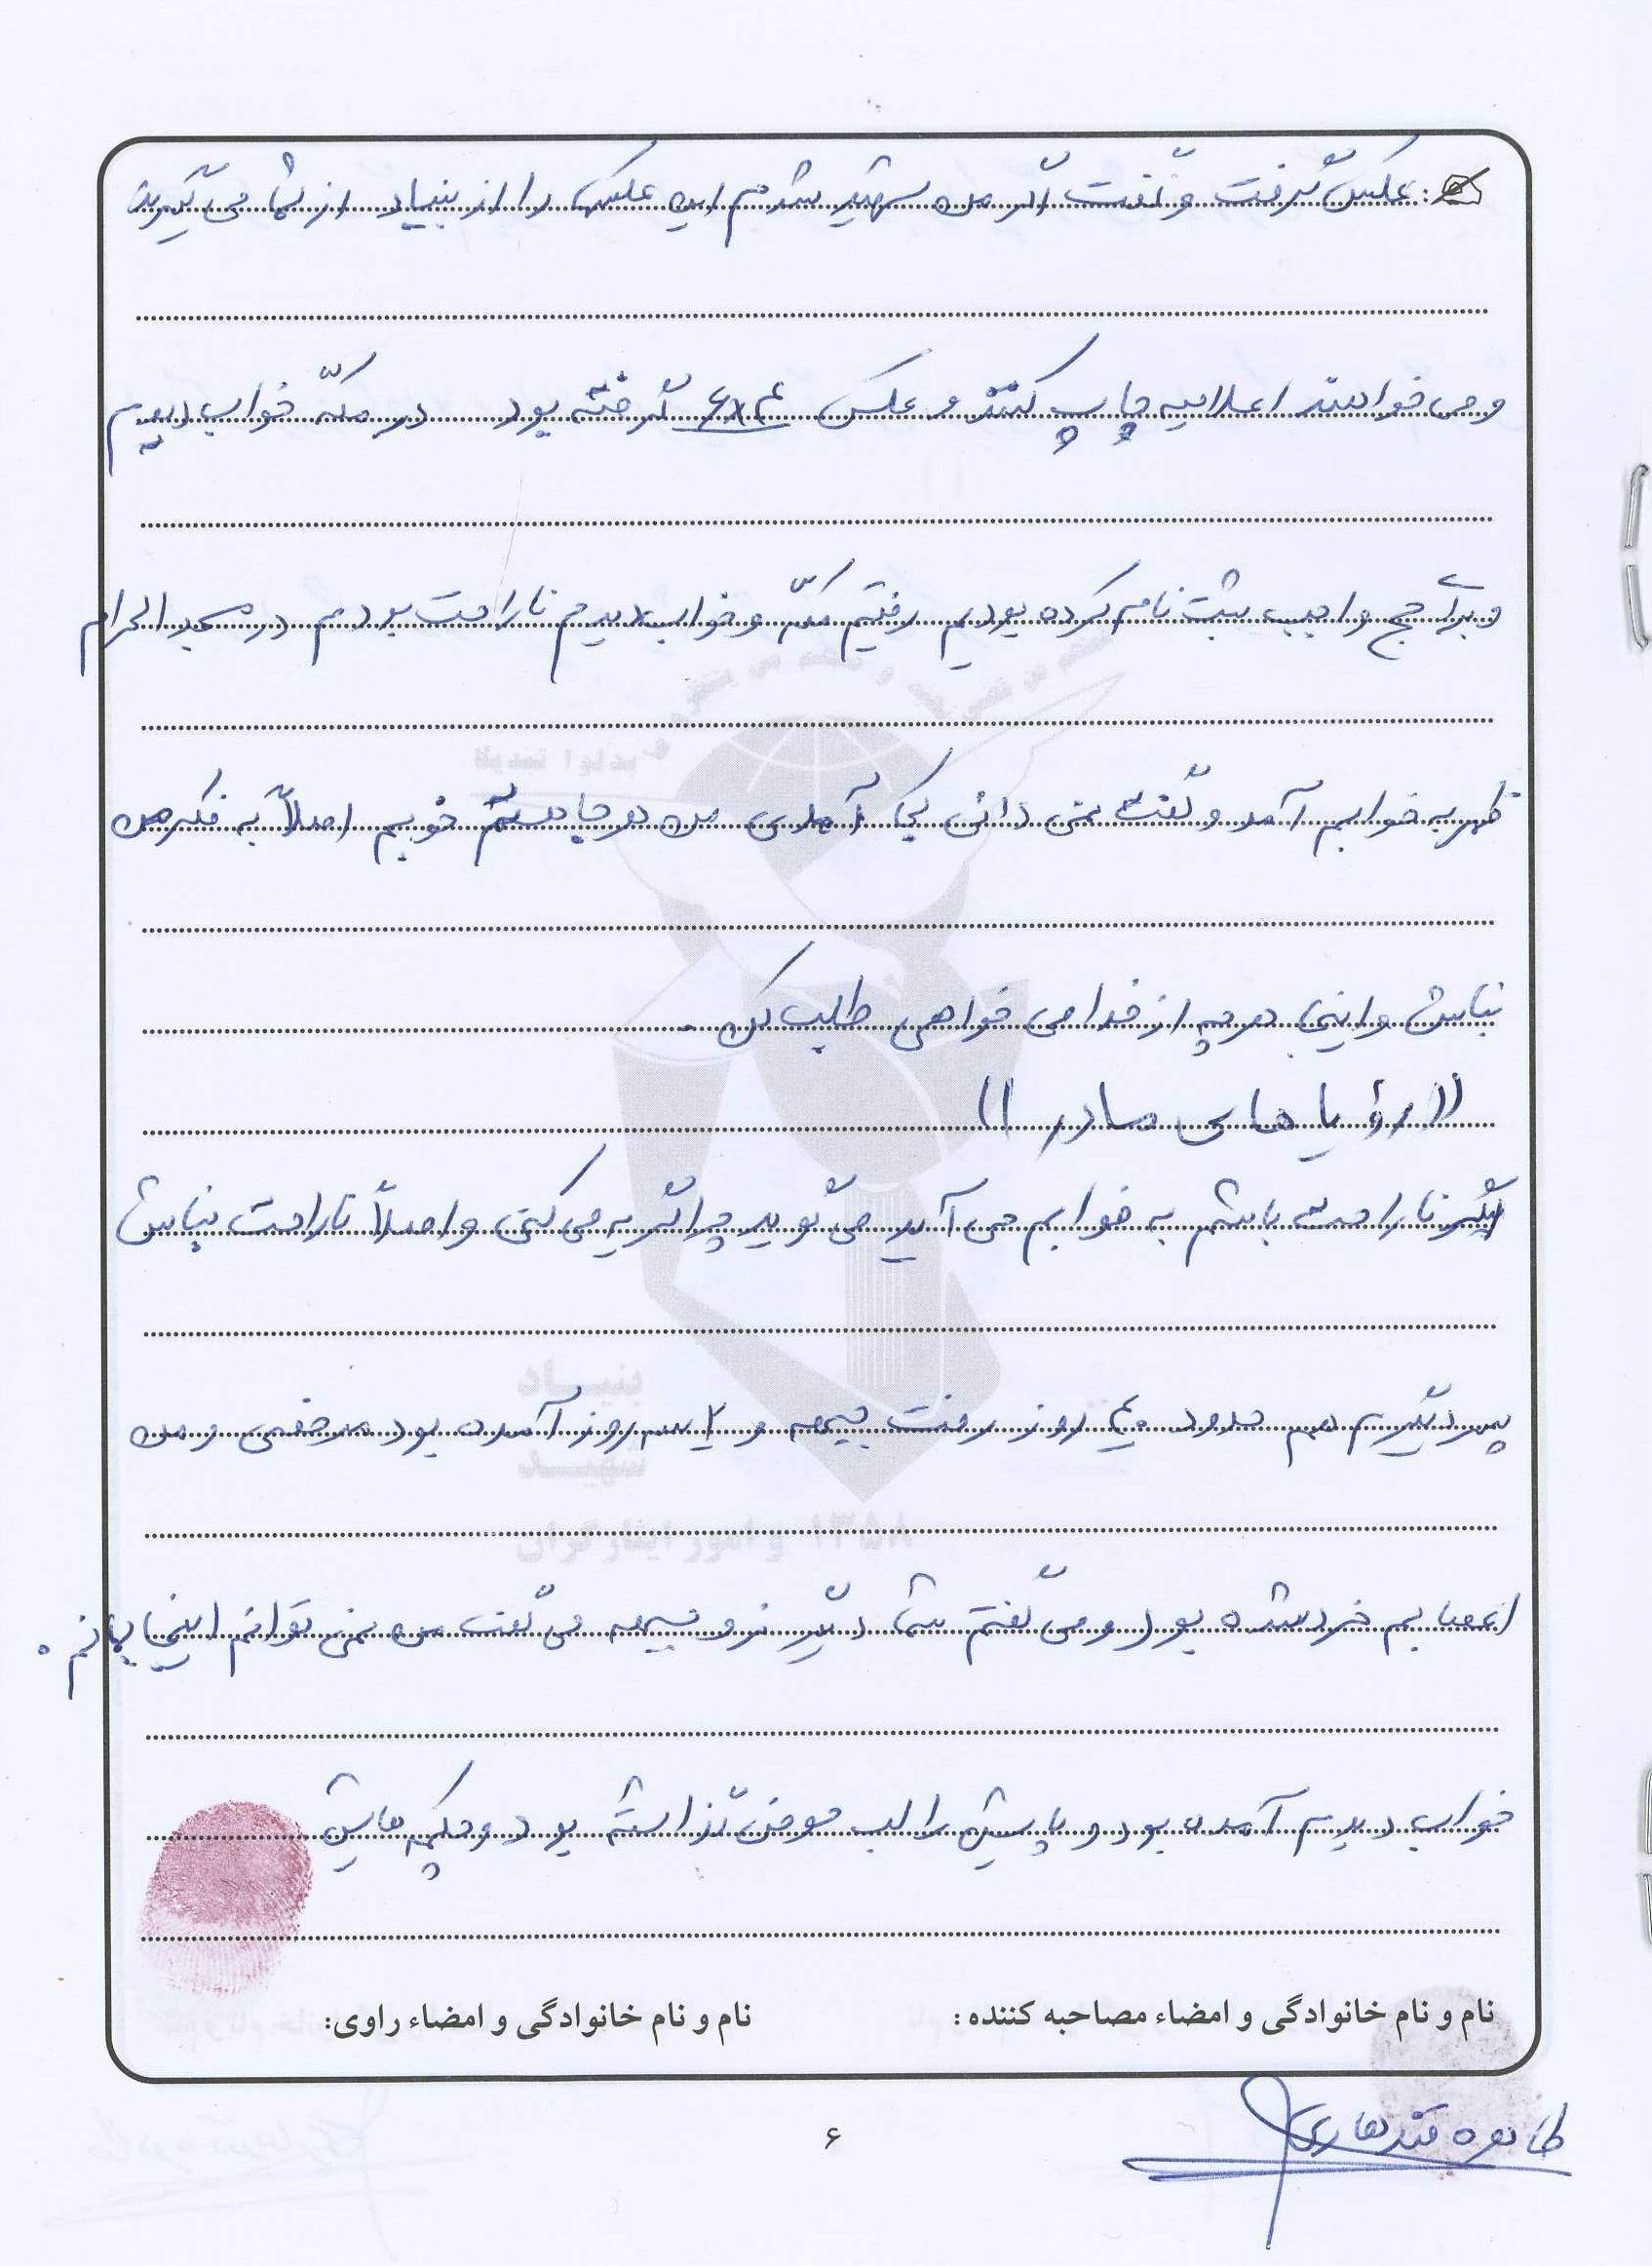 عکس گرفت و گفت اگر من شهید شدم این عکس را از بنیاد از شما می گیرند
و می خواهند اعلامیه چاپ کنند و عکس ۴×۶ گرفته بود در مکّه خواب دیدم
و برای حج واجب ثبت نام کرده بودیم رفتیم مکّه و خواب دیدم ناراحت بودم در مسجد الحرام
ظهر به خوابم آمد و گفت نمی دانی کجا آمدی من هر جا هستم خوبم اصلاً به فکر من
نباش و اینجا هر چه از خدا می خواهی طلب کن .
((رؤیا های مادر))
اگر ناراحت باشم به خوابم می آید می گوید چرا گریه می کنی و اصلاً ناراحت نباش
پسر دیگرم هم حدود روز رفت جبهه و ۲ سه روز آمده بود مرخصی و من
اعصابم خرد شده بود و می گفتم شما دیگر نرو جبهه می گفت من نمی توانم اینجا بمانم .
خواب دیدم آمده بود و پایش را لب حوض گذاشته بود و چکمه هایش
نام و نام خانوادگی و امضاء مصاحبه کننده : نام و نام خانوادگی و امضاء راوی:
طاهره قندهاری
۶
بنیاد
شهید
و امور ایثارگران ۱۳۵۸